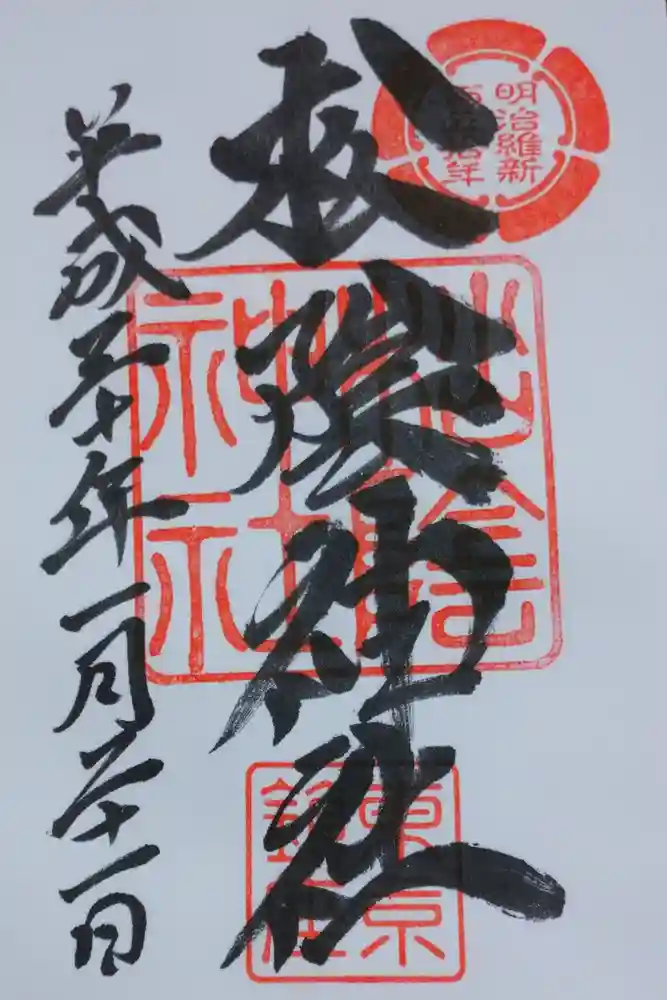 明治維新
百五拾年
松陰神社
松陰
神社
東京
鎮座
平成三十年一月二十一日